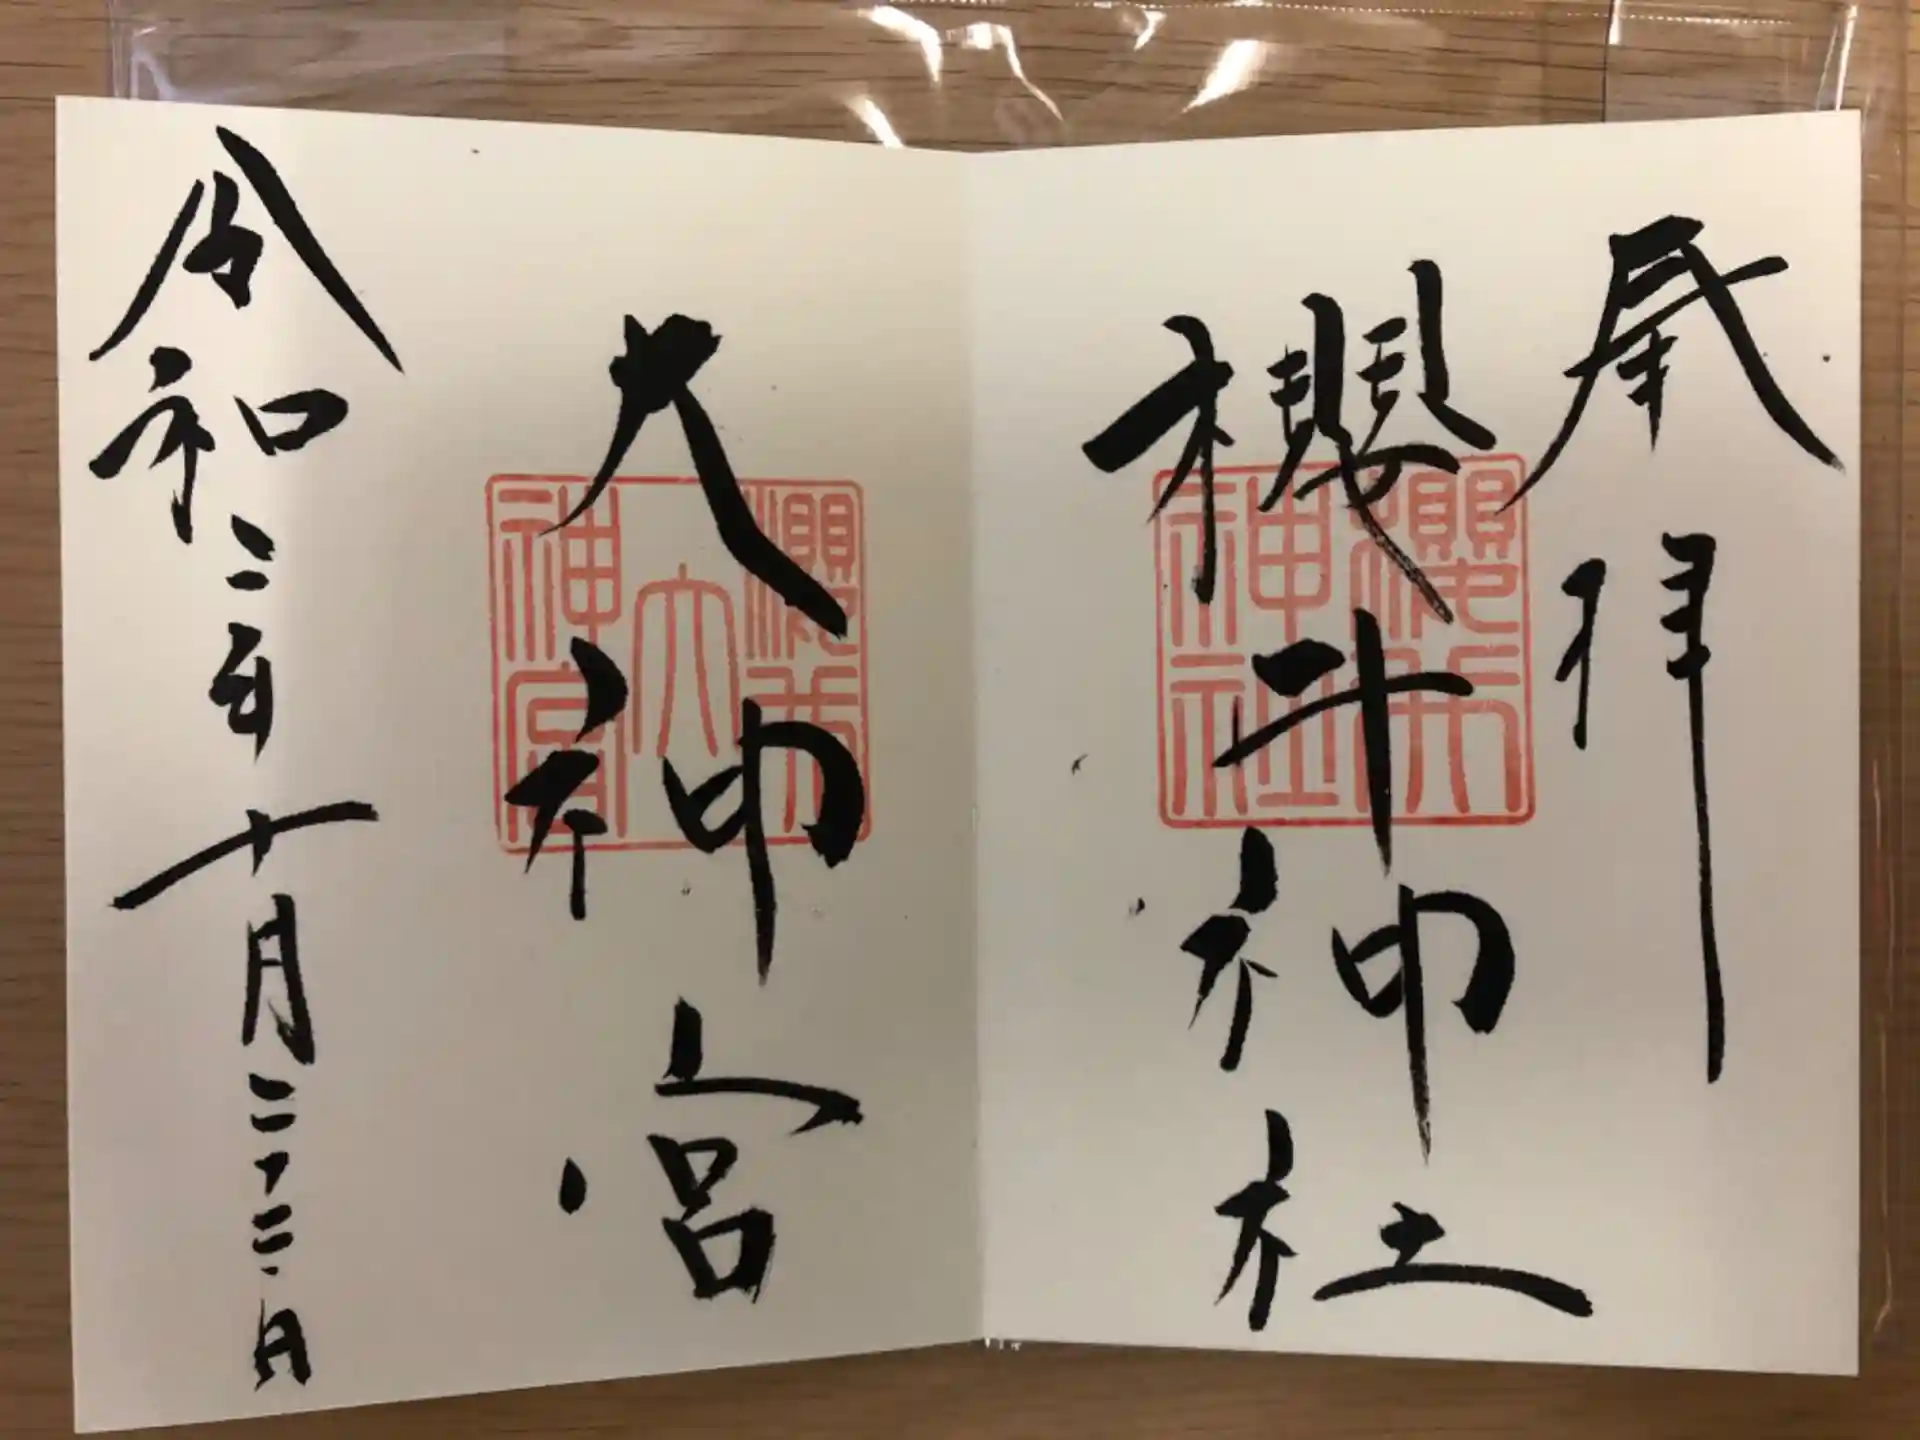 奉拝
櫻井神社
櫻井
神社
大神宮
櫻井
大
神宮
令和二年十月二十二日